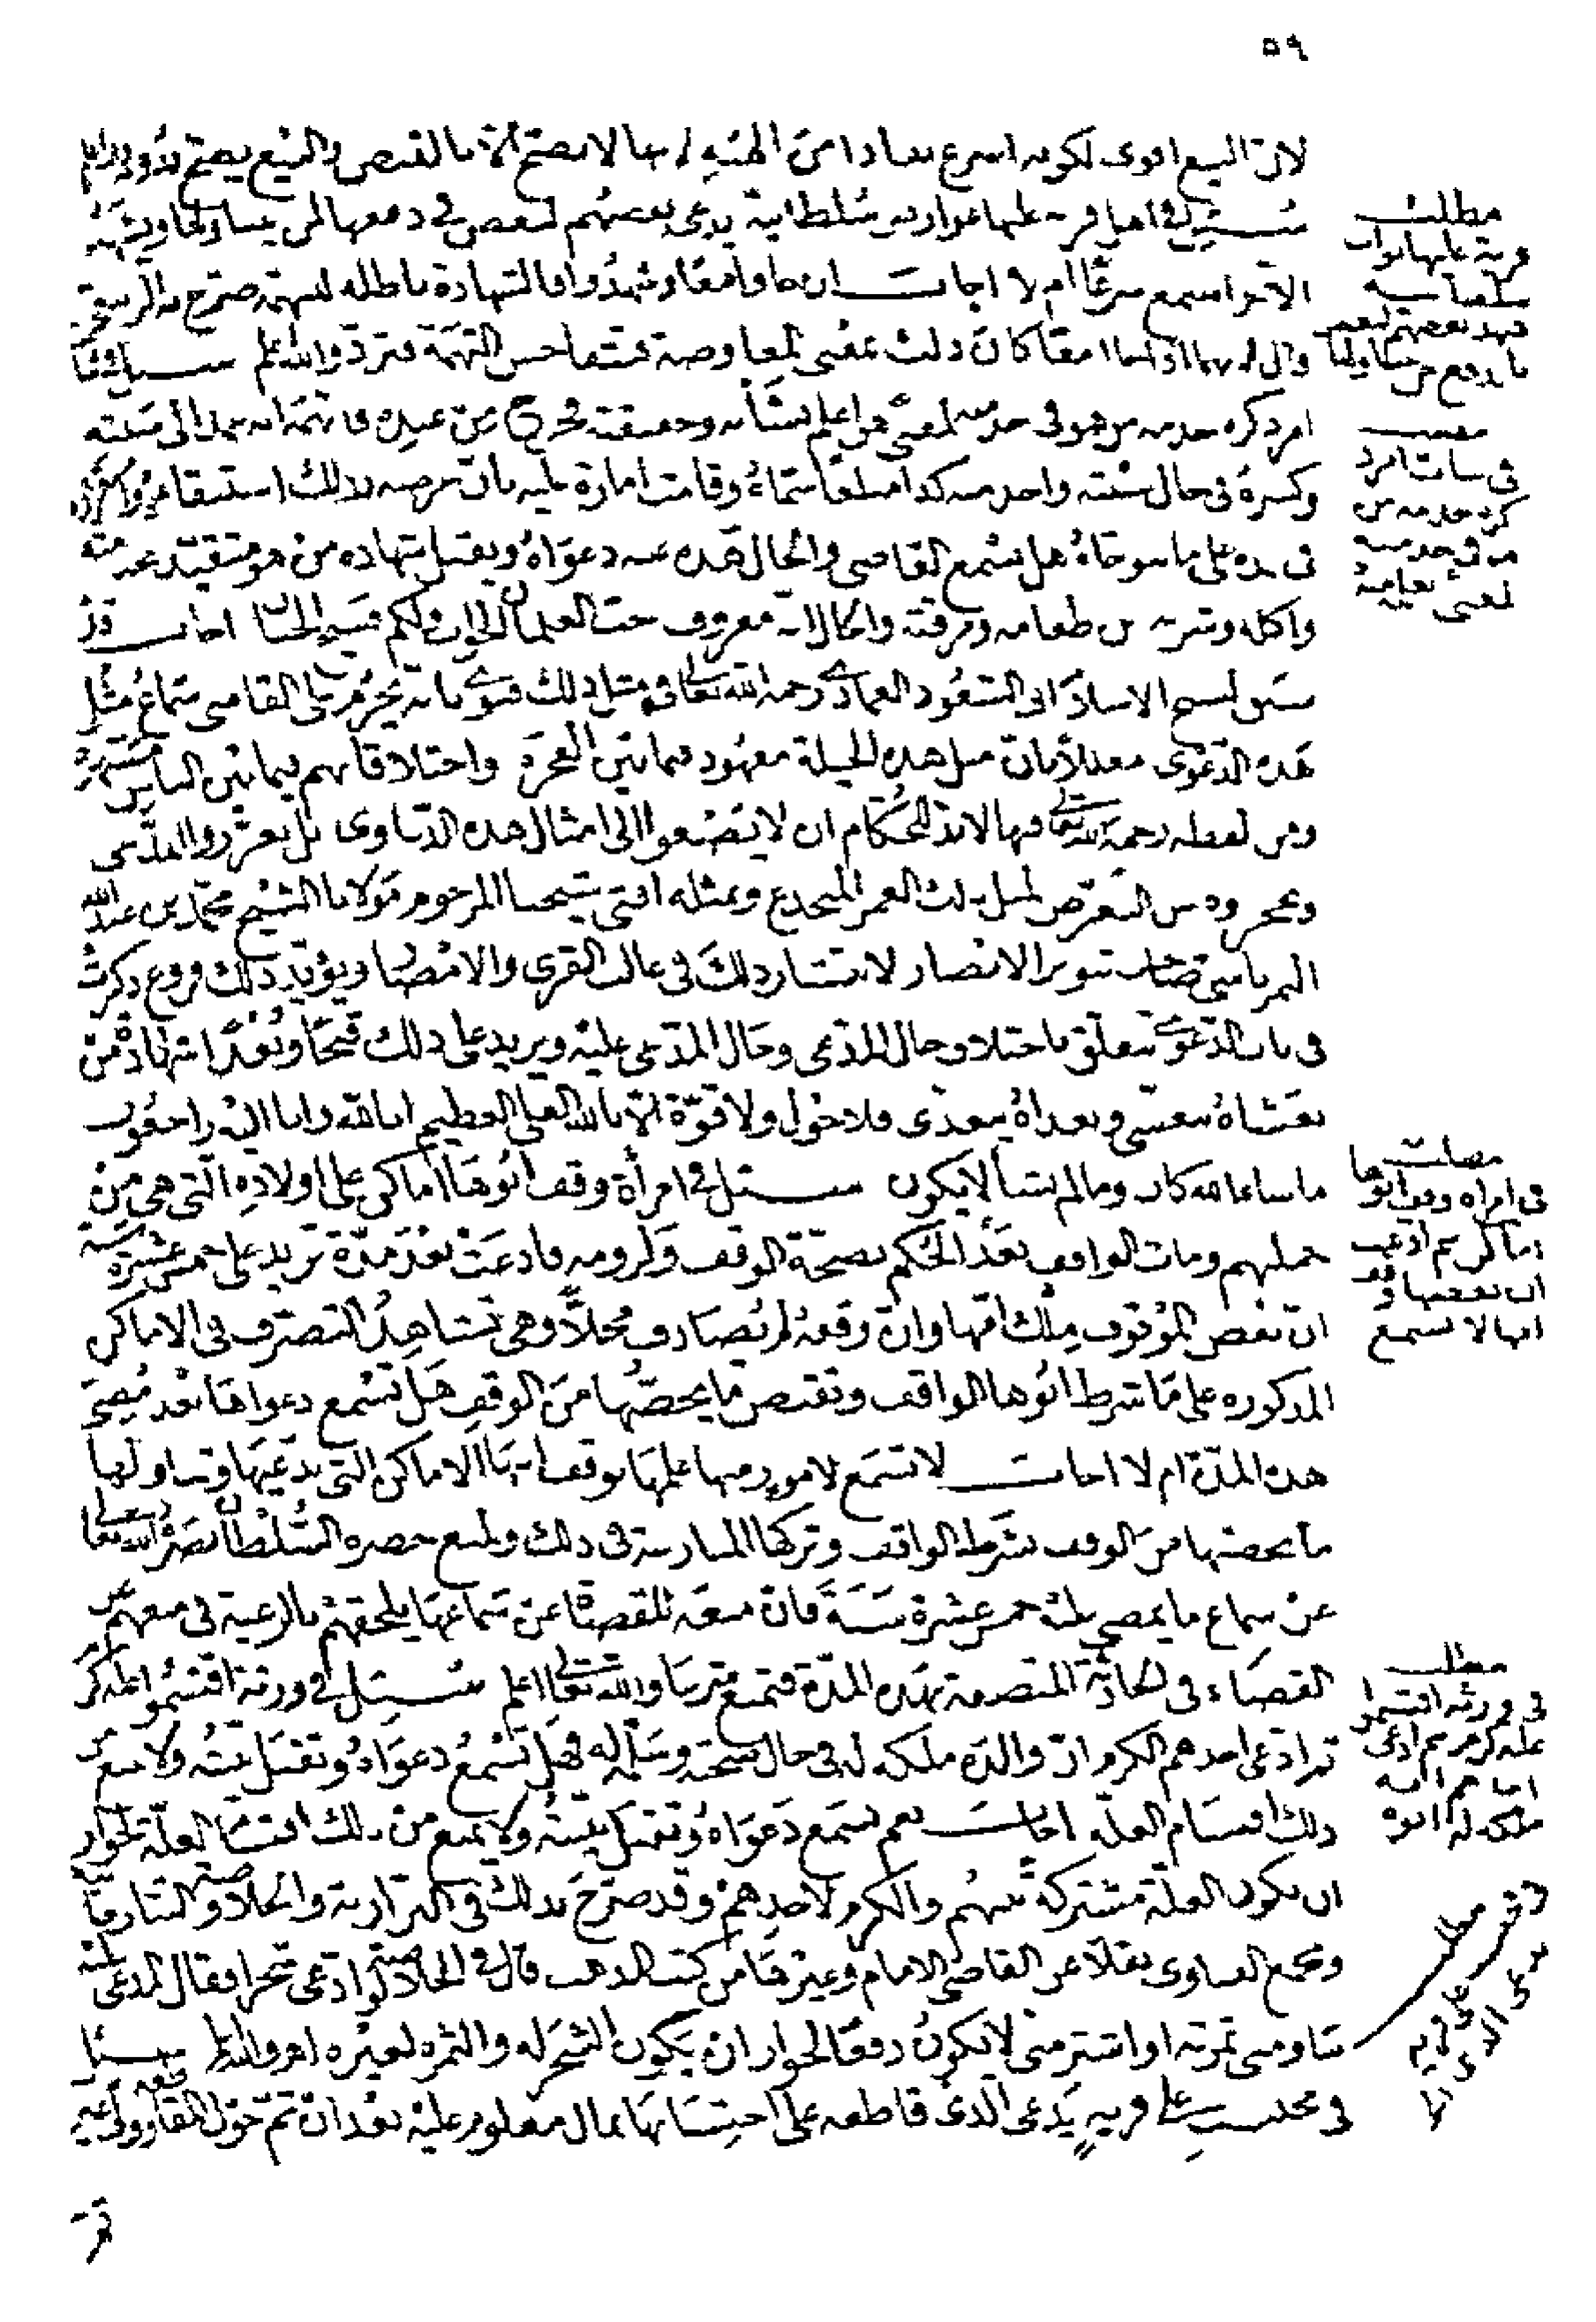 ٥٩
لان البيع اقوى لكونه اسرع نفاذا من الهبة لانها لا تصح الا بالقبض والبيع يصح بدونه والله اعلم
سئل في اهل قرية عليها عوارض سلطانية يدعى بعضهم لبعض في دفعها لمن يتناولها ويشهد
الاخر اتسمع شرعا ام لا اجاب ان جاؤا معا وشهدوا فالشهادة باطلة للتهمة صرح به الزيلعي
معا كان ذلك بمعنى المعاوضة فتفاحش التهمة فترد والله اعلم سئل في
امرد كره خدمة من هو في خدمته لمعنى هو اعلم بشأنه وحقيقته فخرج من عنده فاتهمه انه عمد الى بيته
وكسره في حال غيبته واخذ منه كذا مبلغا سماه وقامت امارة عليه بان غرضه بذلك استبقاؤه واستقراره
في يده على ما يتوخاه هل يسمع القاضي والحال هذه عنه دعواه ويقبل شهادة من هو متقيد بخدمته
واكله وشربه من طعامه ومرقته والحال انه معروف بحب الغلمان الجواب ولكم فسيح الجنان اجاب قد
سبق لشيخ الاسلام ابي السعود العمادي رحمه الله تعالى في مثل ذلك فتوى بانه يحرم على القاضي سماع مثل
هذه الدعوى معللا بان مثل هذه الحيلة معهود فيما بين الفجرة واختلاقاتهم فيما بين الناس مشتهرة
ومن لفظه رحمه الله تعالى فيها لا بد للحكام ان لا يصغوا الى امثال هذه الدعاوى بل يعزروا المدعي
ويحجروه من التعرض لمثل ذلك الغمر المنخدع وبمثله افتى شيخنا المرحوم مولانا الشيخ محمد بن عبد الله
التمرتاشي صاحب تنوير الابصار لانتشار ذلك في غالب القرى والامصار ويؤيد ذلك فروع ذكرت
في باب الدعوى تتعلق باختلاف حال المدعي وحال المدعى عليه ويزيد على ذلك قبحا وبعدا شهادة من
بعشاه يتعشى وبغداه يتغدى فلا حول ولا قوة الا بالله العلي العظيم انا لله وانا اليه راجعون
ما شاء الله كان وما لم يشأ لا يكون سئل في امرأة وقف ابوها اماكن على اولاده التي هي من
جملتهم ومات الواقف بعد الحكم بصحة الوقف ولزومه فادعت بعد مدة تزيد على خمس عشرة سنة
ان بعض الموقوف ملك امها وان وقفه لم يصادف محلا وهي تشاهد التصرف في الاماكن
المذكورة على ما شرط ابوها الواقف وتقبض ما يخصها من الوقف هل تسمع دعواها بعد مضي
هذه المدة ام لا اجاب لا تسمع لامور منها علمها بوقف ابيها الاماكن التي تدعيها وتناولها
ما يخصها من الوقف بشرط الواقف وتركها المنازعة في ذلك ولمنع حضرة السلطان نصره الله تعالى
عن سماع ما يمضي عليه خمس عشرة سنة فان منعه للقضاة عن سماعها يلحقهم بالرعية في منعهم عن
القضاء في الحادثة المتصفة بهذه المدة فتمنع شرعا والله تعالى اعلم سئل في ورثة اقتسموا غلة كرم
ثم ادعى احدهم الكرم ان والده ملكه له في حال صحته وسلمه له فهل تسمع دعواه وتقبل بينته ولا يمنع من
ذلك اقتسام الغلة اجاب نعم تسمع دعواه وتقبل بينته ولا يمنع من ذلك اقتسام الغلة لجواز
ان تكون الغلة مشتركة بينهم والكرم لاحدهم وقد صرح بذلك في البزازية والخلاصة والتتارخانية
ومجمع الفتاوى نقلا عن القاضي الامام وغيرها من كتب المذهب قال في الخلاصة لو ادعى شجرا فقال المدعى عليه
ساومني ثمرته او اشتر مني لا يكون دفعا لجواز ان يكون الشجر له والثمرة لغيره اهـ والله اعلم سئل
في محتسب على قرية يدعي الذي قاطعه على احتسابها بمال معلوم عليه بعد ان تم حول المقاطعة
مطلب
قرية عليها عوارض
سلطانية
فشهد بعضهم لبعض
بالدفع من تناولها
مطلب
في شاب امرد
كره خدمة من
هو في خدمته
لمعنى يعلمه
مطلب
في امرأة وقف ابوها
اماكن ثم ادعت
ان بعضها وقف
امها لا تسمع
مطلب
في ورثة اقتسموا
غلة كرم ثم ادعى
احدهم انه
ملكه له ابوه